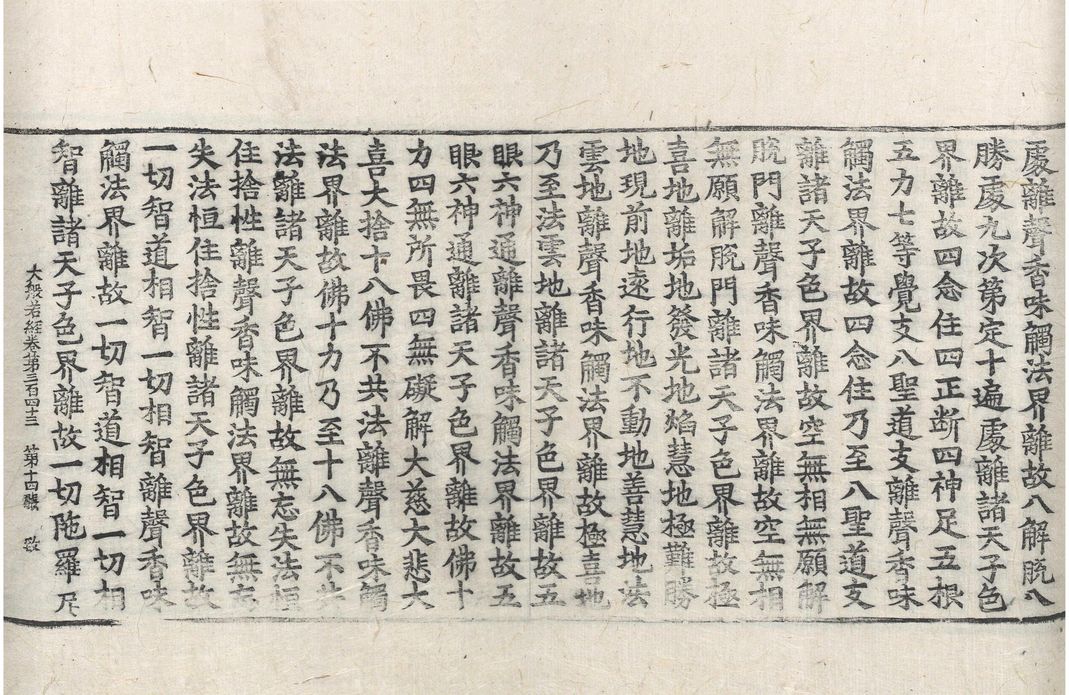 處離聲香味觸法界離故八解脫八
勝處九次第定十遍處離諸天子色
界離故四念住四正斷四神足五根
五力七等覺支八聖道支離聲香味
觸法界離故四念住乃至八聖道支
離諸天子色界離故空無相無願解
脫門離聲香味觸法界離故空無相
無願解脫門離諸天子色界離故極
喜地離垢地發光地焰慧地極難勝
地現前地遠行地不動地善慧地法
雲地離聲香味觸法界離故極喜地
乃至法雲地離諸天子色界離故五
眼六神通離聲香味觸法界離故五
眼六神通離諸天子色界離故佛十
力四無所畏四無礙解大慈大悲大
喜大捨十八佛不共法離聲香味觸
法界離故佛十力乃至十八佛不共
法離諸天子色界離故無忘失法恒
住捨性離聲香味觸法界離故無忘
失法恒住捨性離諸天子色界離故
一切智道相智一切相智離聲香味
觸法界離故一切智道相智一切相
智離諸天子色界離故一切陁羅尼
大般若經卷第三百四十三 第十四張